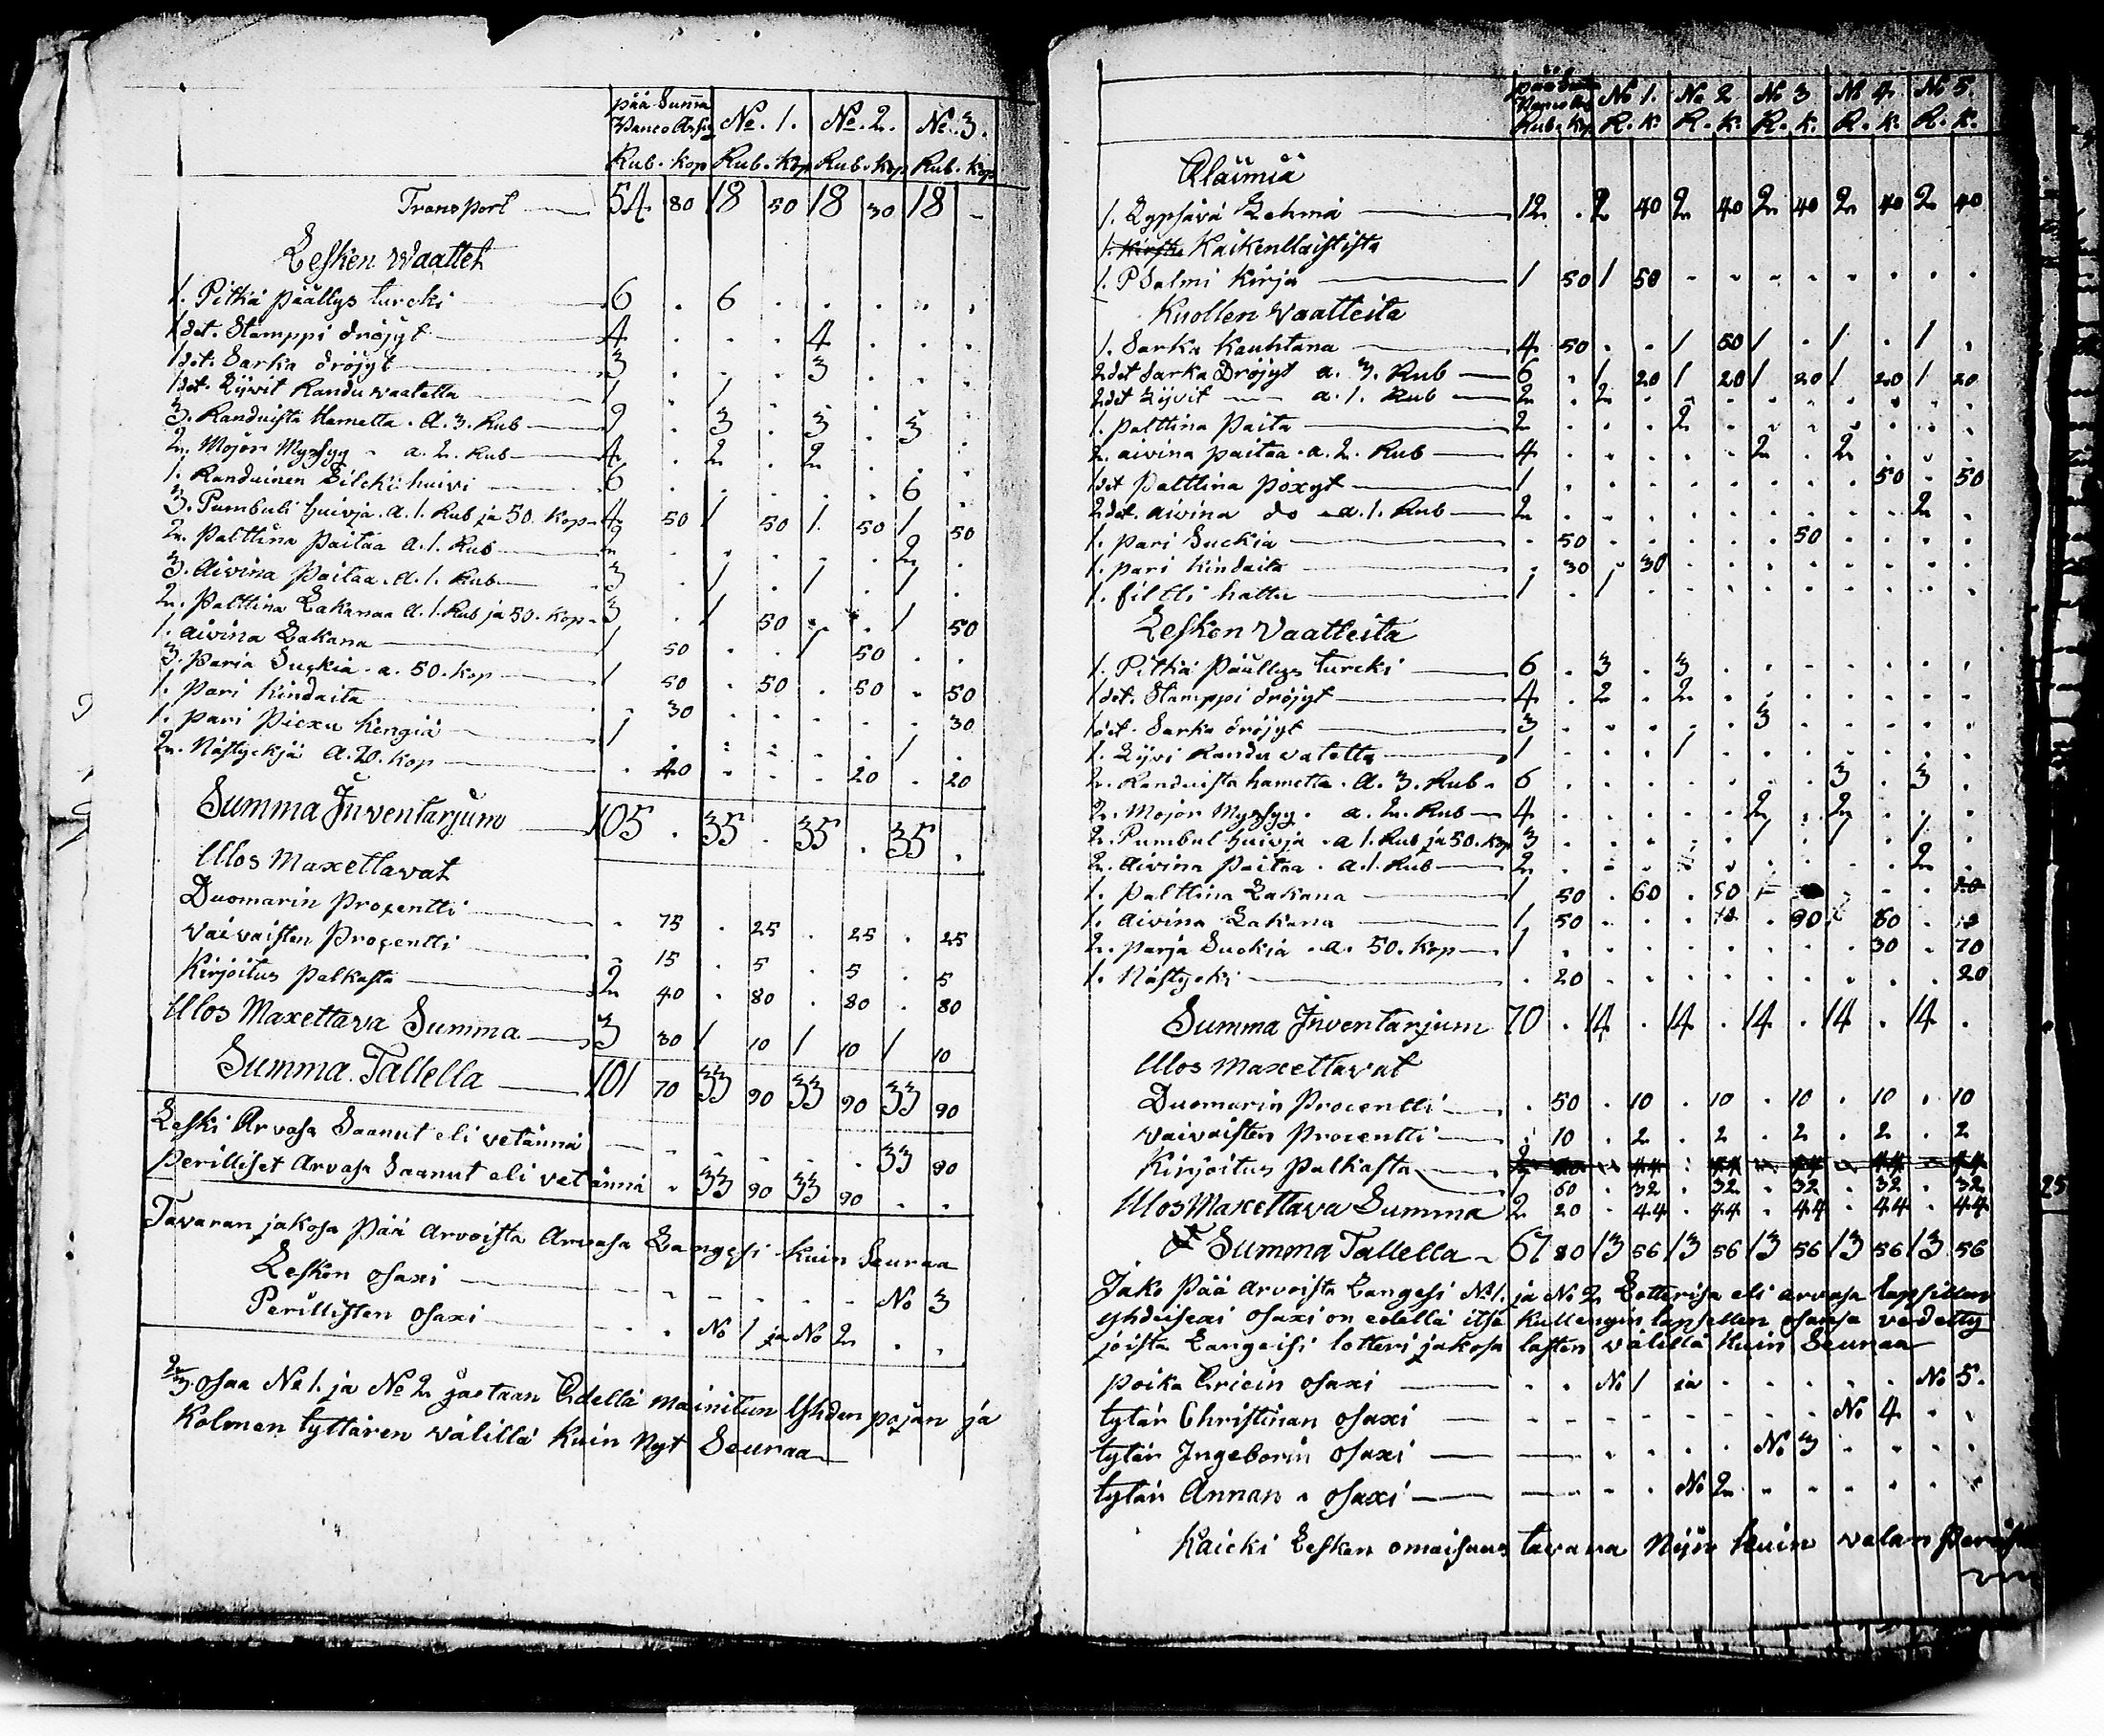 pää Summa No. 1. No. 2. No. 3.
Vanco Assig
Rub. kop Rub. kop Rub. kop Rub. kop
Transport 54 80 18 50 18 30 18 -
Lesken Vaattet
1. Pitkä päällys turcki 6 . 6 . . . . .
1 det. Stamppi dröjyt 4 . . . 4 . . .
1 det. Sarka dröjyt 3 . . . 3 . . .
1 det. Lijvit Randu vaatetta 1 . 1 . . . . .
3. Randuista Hametta . A. 3. Rub 9 . 3 . 3 . 3 .
2. Mojön Myssyy a. 2. Rub 4 . 2 . 2 . . .
1. Randuinen Silcki huivi 6 . . . . . 6 .
3. Pumbuli huivja . A. 1. Rub ja 50. Kop 4 50 1 50 1 50 1 50
2. Palttina paitaa A. 1. Rub 2 . . . . . 2 .
3. Aivina Paitaa . A. 1. Rub 3 . 1 . 1 . 1 .
2. Palttina Lakanaa A. 1. Rub ja 50. Kop 3 . 1 50 . . 1 50
1. Aivina Lakana 1 50 . . 1 50 . .
3. Paria Suckia . a. 50. Kop 1 50 . 50 . 50 . 50
1. Pari Kindaita . 30 . . . . . 30
1. pari Piexu Kengiä 1 . . . . . 1 .
2. Nästyckjä A. 20. Kop . 40 . . . 20 . 20
Summa Inventarjum 105 . 35 . 35 . 35 .
Ulos Maxettavat
Duomarin Procentti . 75 . 25 . 25 . 25
Vaivaisten Procentti . 15 . 5 . 5 . 5
Kirjoitus palkasta 2 40 . 80 . 80 . 80
Ulos Maxettava Summa 3 30 1 10 1 10 1 10
Summa Tallella 101 70 33 90 33 90 33 90
Leski Arvasa Saanut eli vetännä . . . . . . 33 90
Perilliset Arvasa Saanut eli vetännä . . 33 90 33 90 . .
Tavaran jakosa Pää Arvoista Arvasa Langesi Kuin Seuraa
Lesken osaxi No 3
Perillisten osaxi No 1 ja No 2 . .
2/3 osaa No 1. ja No 2 jaetaan Edellä mainitun Yhden pojan ja
Kolmen tyttären välillä Kuin Nyt Seuraa
pää Summa No 1. No 2 No 3 No 4. No 5.
Vanco As
Rub. Kop R. K. R. K. R. K. R. K. R. K.
Eläimiä
1. Lypsävä Lehmä 12 . 2 40 2 40 2 40 2 40 2 40
Kaikenllaististа
1. PSalmi Kirja 1 50 1 50 . . . . . . . .
Kuollen Vaatteita
1. Sarka Kauhtana 4 50 . . 1 50 1 . 1 . 1 .
2 det Sarka Dröjyt a. 3. Rub 6 . 1 20 1 20 1 20 1 20 1 20
2 det Lijvit a. 1. Rub 2 . 2 . . . . . . . . .
1. palttina Paita 2 . . . 2 . . . . . . .
2. aivina paitaa . a. 2. Rub 4 . . . . . 2 . 2 . . .
1 det Palttina pöxyt 1 . . . . . . . . 50 . 50
2 det. aivina do a. 1. Rub 2 . . . . . . . . . 2 .
1. pari Suckia . 50 . . . . . 50 . . . .
1. pari Kindaita . 30 . 30 . . . . . . . .
1. filtti hattu 1 . 1 . . . . . . . . .
Lesken Vaatteita
1. Pitkä Päällys turcki 6 . 3 . 3 . . . . . . .
1 det. Stamppi dröjyt 4 . 2 . 2 . . . . . . .
1 det. Sarka dröjyt 3 . . . . . 3 . . . . .
1. Lijvi Randu vatetta 1 . . . 1 . . . . . . .
2. Randuista hametta . A. 3. Rub. 6 . . . . . . . 3 . 3 .
2. Mojön Myssyy. a. 2. Rub 4 . . . . . 2 . 2 . . .
2. Pumbul huivja . a 1. Rub ja 50. Kop 3 . . . . . 1 . 1 . 1 .
2. Aivina Paitaa . a. 1. Rub 2 . . . . . . . . . 2 .
1. Palttina Lakana 1 50 . 60 . 50
1. Aivina Lakana 1 50 . . . 90 . 50 .
2. Parja Suckia . a. 50. Kop 1 . . . . . . . . 30 . 70
1. Nästycki . 20 . . . . . . . . . 20
Summa Inventarjum 70 . 14 . 14 . 14 . 14 . 14 .
Ulos Maxettavat
Duomarin Procentti . 50 . 10 . 10 . 10 . 10 . 10
Vaivaisten Procentti . 10 . 2 . 2 . 2 . 2 . 2
Kirjoitus Palkasta 1 60 . 32 . 32 . 32 . 32 . 32
Ulos Maxettava Summa 2 20 . 44 . 44 . 44 . 44 . 44
Summa Tallella 67 80 13 56 13 56 13 56 13 56 13 56
Jako Pää Arvoista Langesi No 1. ja No 2 Lotterisa eli arvasa lapsillen
yhdeisexi osaxi on edellä itse Kullengin lapsellen osansa vedetty
joista Langeisi lotteri jakosa lasten välillä Kuin Seuraa
poika Ericin osaxi No 1 ja No 5.
tytär Christinan osaxi No 4 . .
tytär Ingeborin osaxi No 3 . . . .
tytär Annan osaxi No 2 . . . . . .
Kaicki Lesken omaisuus tavara Nijn kuin velan
25